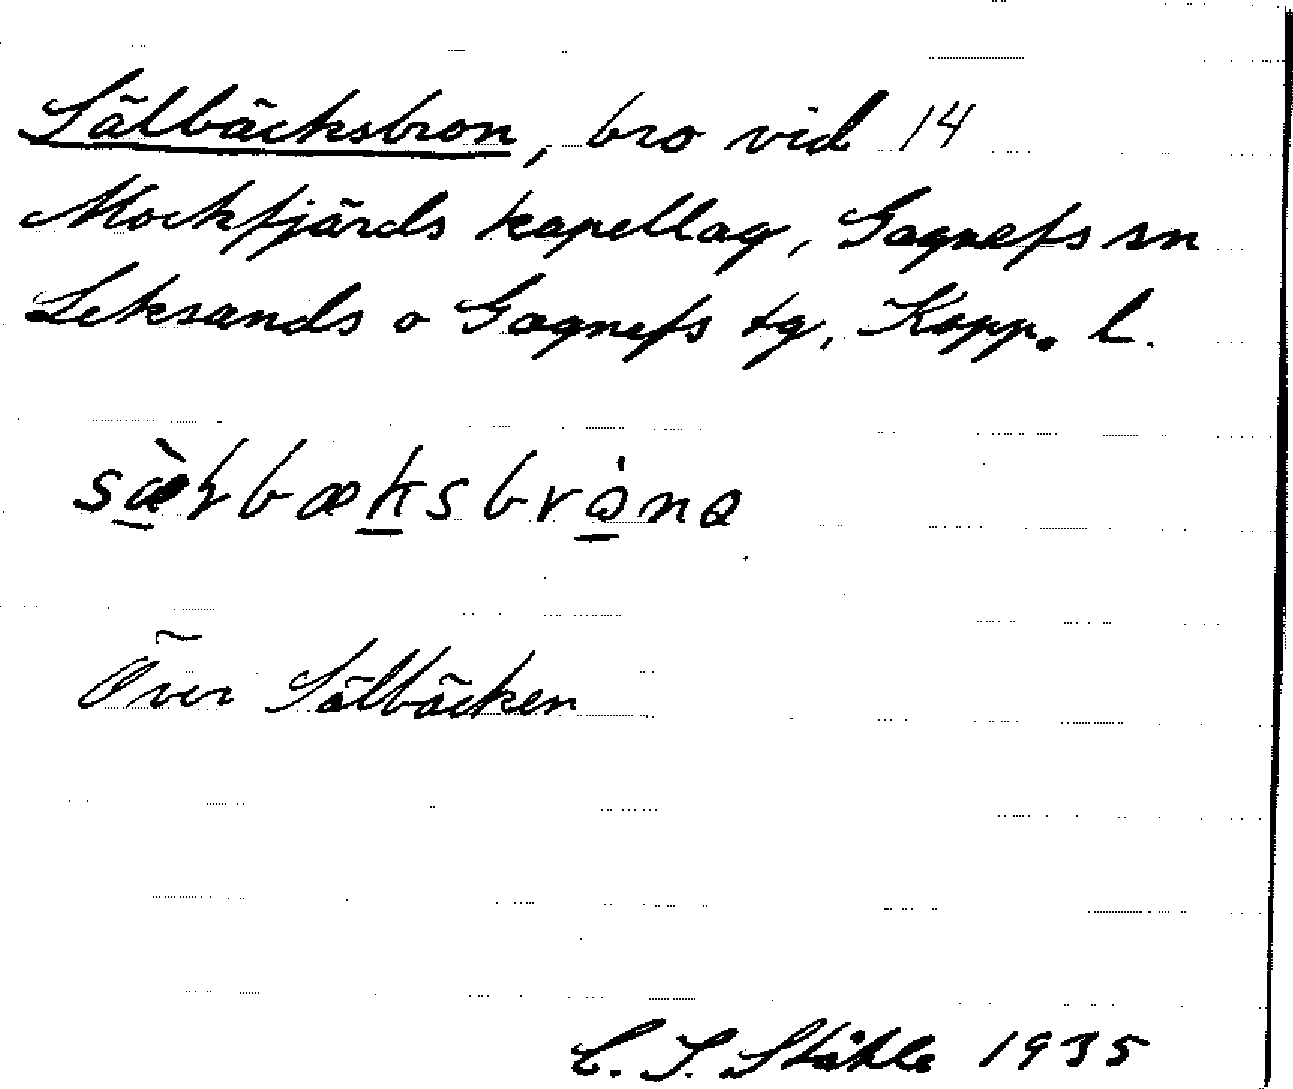 Sälbäcksbron, bro vid 14
Mockfjärds kapellag, Gagnefs sn
Leksands o Gagnefs tg, Kopp. l.
Över Sälbäcken
C. I. Ståhle 1935